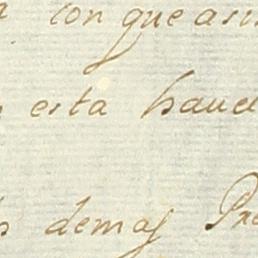 con que asi
esta haud
demas Pre